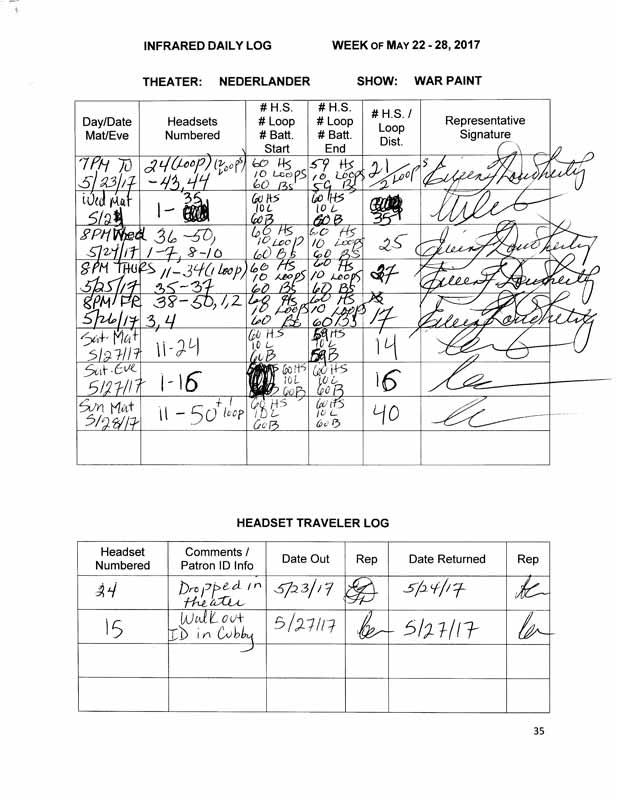 INFRARED DAILY LOG WEEK OF MAY 22 - 28, 2017
THEATER: NEDERLANDER SHOW: WAR PAINT
Day/Date Mat/Eve Headsets Numbered # H.S. # Loop # Batt. Start # H.S. # Loop # Batt. End # H.S. / Loop Dist. Representative Signature
7PM TU 5/23/17 24 (Loop) (2 Loops) - 43, 44 60 HS 10 Loops 60 Bs 59 HS 10 Loops 59 Bs 21 / 2 Loops Eileen F Dougherty
Wed Mat 1 - 35 60 HS 10 L 60 B 60 HS 10 L 60 B 35
8PM Wed 5/24/17 36 - 50, 1 - 7, 8 - 10 60 HS 10 Loop 60 Bs 60 HS 10 Loops 60 Bs 25 Eileen F Dougherty
8PM THURS 5/25/17 11 - 34 (1 Loop) 35 - 37 60 HS 10 Loops 60 Bs 60 HS 10 Loops 60 Bs 27 Eileen F Dougherty
8PM/FR 5/26/17 38 - 50, 1, 2 3, 4 60 HS 10 Loops 60 Bs 60 HS 10 Loops 60 Bs 17 Eileen F Dougherty
Sat. Mat 5/27/17 11 - 24 60 HS 10 L 60 B 59 HS 10 L 59 B 14
Sat. Eve 5/27/17 1 - 16 60 HS 10 L 60 B 60 HS 10 L 60 B 16
Sun Mat 5/28/17 11 - 50 + 1 loop 60 HS 10 L 60 B 60 HS 10 L 60 B 40
HEADSET TRAVELER LOG
Headset Numbered Comments / Patron ID Info Date Out Rep Date Returned Rep
34 Dropped in theater 5/23/17 5/24/17
15 Walk out ID in Cubby 5/27/17 5/27/17
35